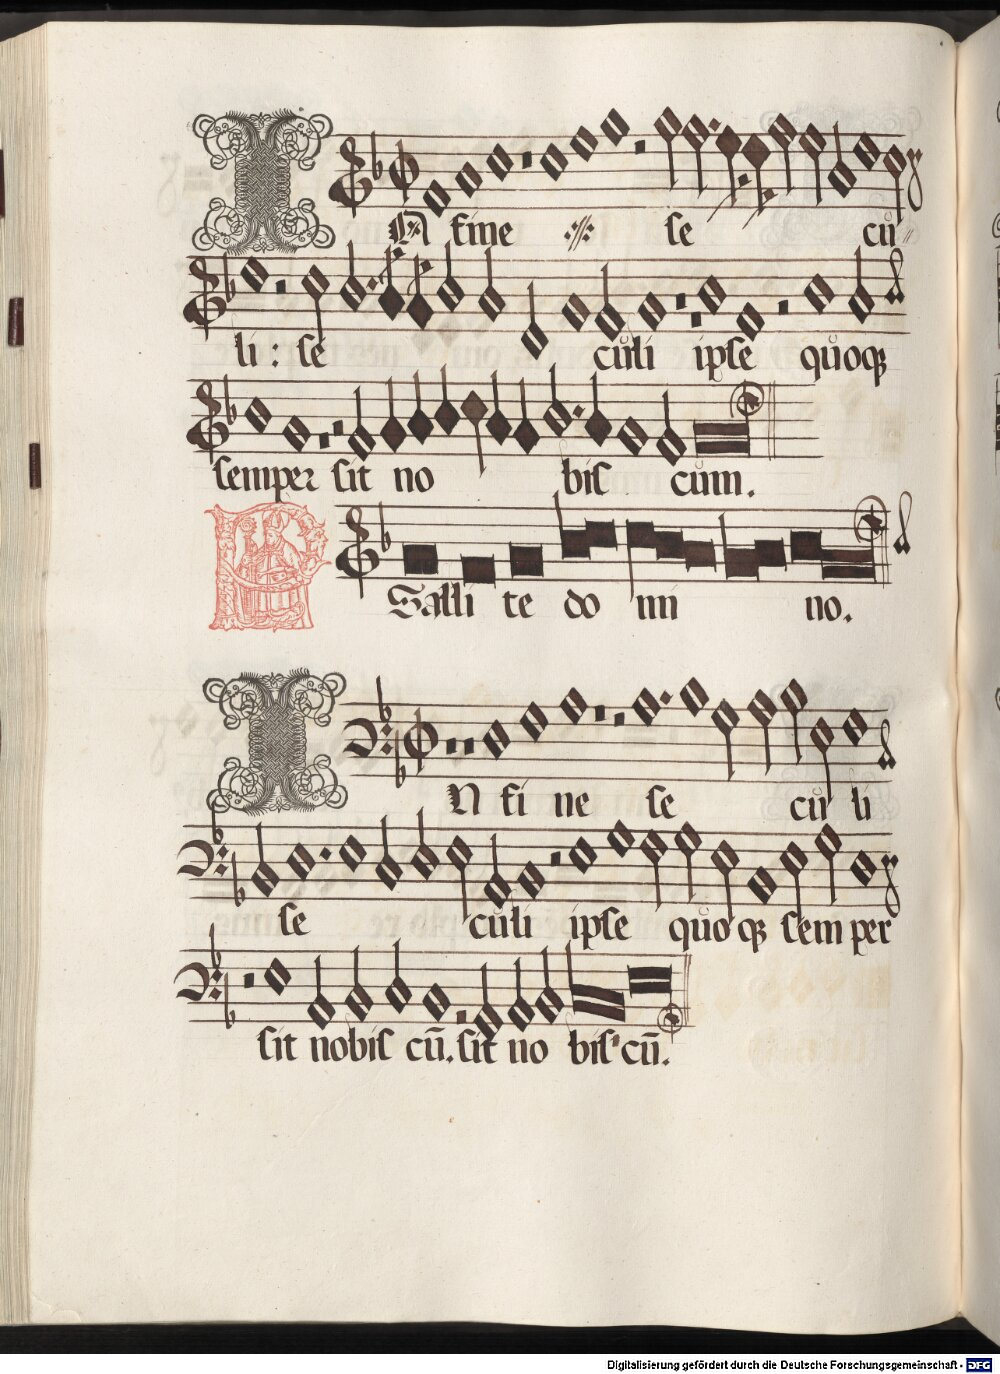 IN fine se cū
li: se culi ipse quoqꝫ
semper sit no bis cum.
PSalli te do mi no.
IN fi ne se cu li
se culi ipse quo qꝫ semper
sit nobis cū. sit no bis cū.
Digitalisierung gefördert durch die Deutsche Forschungsgemeinschaft - DFG